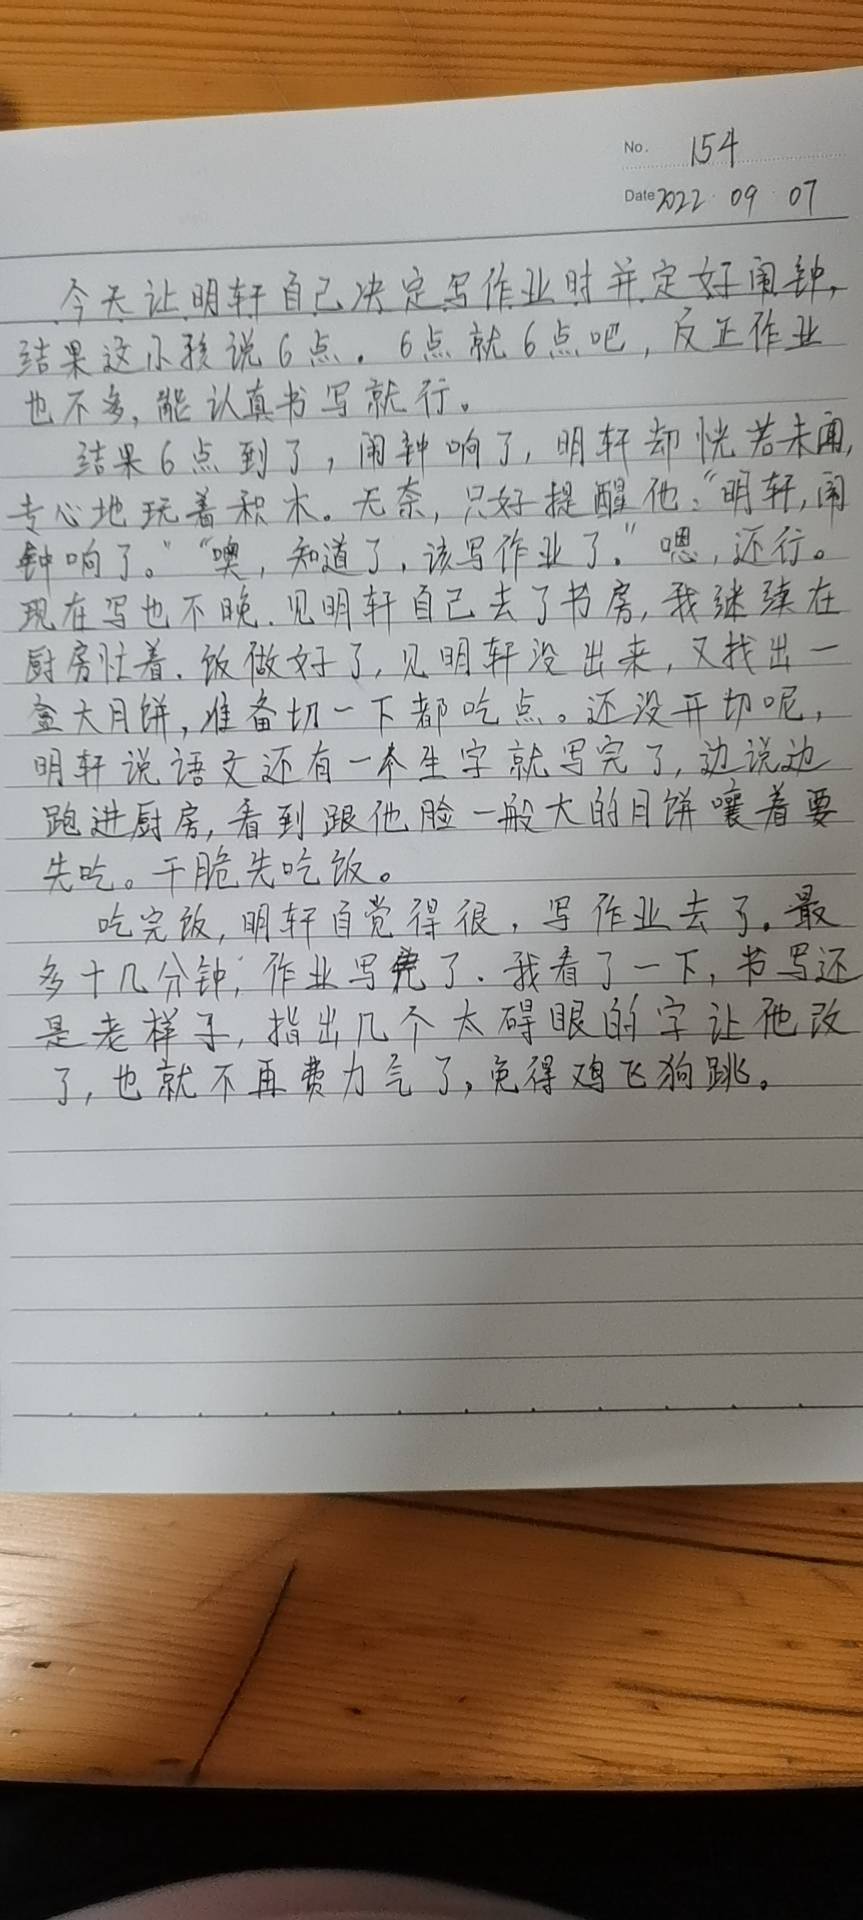 No. 154
Date 2022 09 07
今天让明轩自己决定写作业时并定好闹钟,
结果这小孩说6点。6点就6点吧,反正作业
也不多,能认真书写就行。
结果6点到了,闹钟响了,明轩却恍若未闻,
专心地玩着积木。无奈,只好提醒他:“明轩,闹
钟响了。”“噢,知道了,该写作业了。”嗯,还行。
现在写也不晚.见明轩自己去了书房,我继续在
厨房忙着.饭做好了,见明轩没出来,又找出一
盒大月饼,准备切一下都吃点。还没开切呢,
明轩说语文还有一个生字就写完了,边说边
跑进厨房,看到跟他脸一般大的月饼嚷着要
先吃。干脆先吃饭。
吃完饭,明轩自觉得很,写作业去了.最
多十几分钟,作业写完了.我看了一下,书写还
是老样子,指出几个太碍眼的字让他改
了,也就不再费力气了,免得鸡飞狗跳。